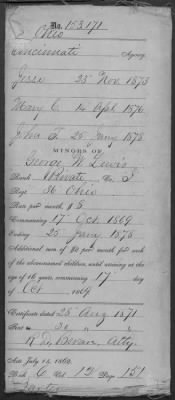 Ohio
No. 153,171
Cincinnati Agency.
Jesse 25 Nov 1873
Mary C 14 Apl 1876
John F 25 June 1878
MINORS OF
George W Lewis
Rank Private Co. I
Reg't 36 Ohio
Rate per month $8
Commencing 17 Oct 1869
Ending 25 June 1878
Additional sum of $2 per month for each
of the abovenamed children, until arriving at the
age of 16 years, commencing 17 day
of Oct 1869
Certificate dated 25 Aug 1871
Sent
R. D. Bevan, Atty.
Act July 14, 1862.
Book C Vol 12 Page 151